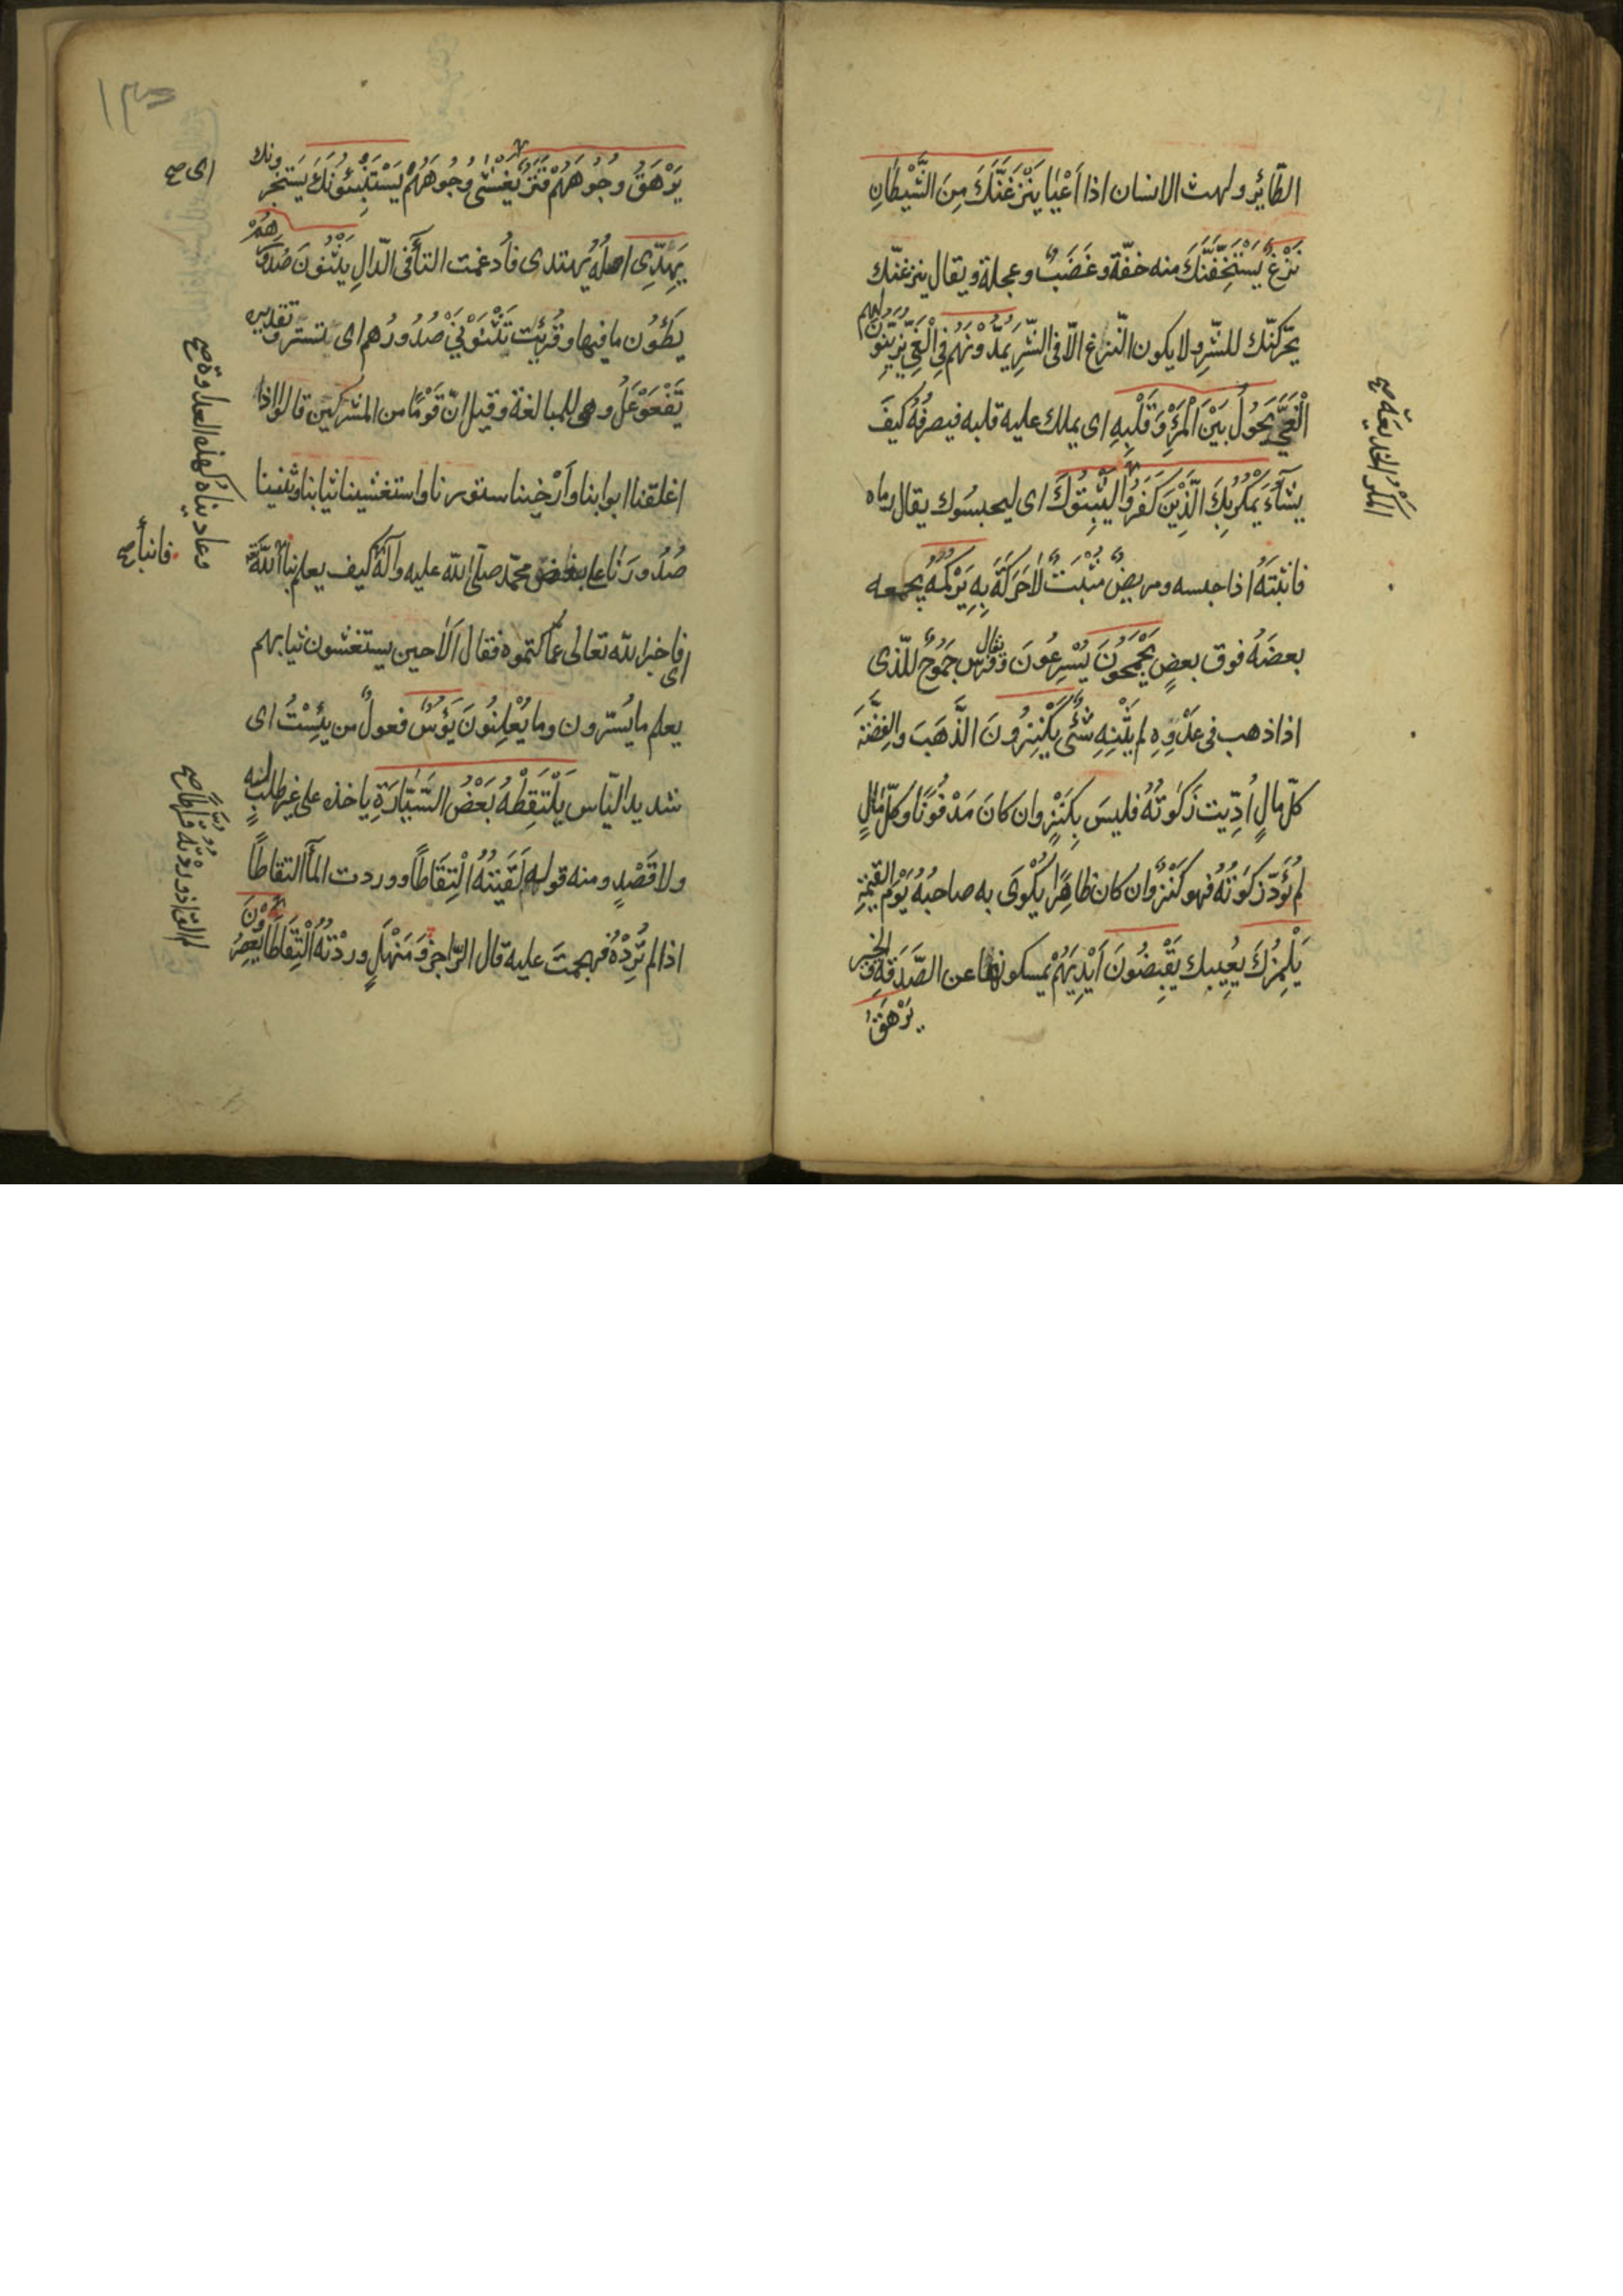 الطّائِر ولهث الانسان اذا اَعْيٰا يَنْزَغَنَّكَ مِنَ الشَّيْطٰانِ
نَزْغٌ يَسْتَخِفَّنَّكَ منه خفّة وغَضَبٌ وعجلة ويقال ينزغنّك
يحّركنّك للشّر ولا يكون النّزغ الّا فى الشّرِ يَمُدُّوْنَهُمْ فِى الْغَىِّ يُزَيِّنُوْنَ لهم
الْغَىَّ يَحُوْلُ بَيْنَ الْمَرْءِ وَقَلْبِهِ اى يملك عليه قلبه فيصرفُهُ كيفَ
يشآءُ يَمْكُرُبِكَ الَّذِيْنَ كَفَرُوْا لِيُثْبِتُوْكَ اى ليحبسُوك يقال رماه
فاثبَتَهُ اذا حبسه ومريضٌ مُثْبَتٌ لٰا حَرَكَةَ بِهِ يَرْكُمَهُ يجمعه
بعضَهُ فوق بعضٍ يَجْمَحُوْنَ يُسْرِعُونَ يقال فَرَس جَمُوْحٌ للّذى
اذا ذهب فى عَدْوِهِ لم يَثْنِهِ شَئٌ يَكْنِزُونَ الذَّهَبَ والفِضَّةَ
كلّ مالٍ اُدِّيت زَكٰوتُهُ فليسَ بِكَنْزٍ وان كانَ مَدْفُوْنًا وكلّ مٰالٍ
لم تُؤَدَّ زكوٰتُهُ فهو كَنْزٌ وان كان ظاهِرًا يُكْوٰى به صاحبُهُ يَوْمَ القيٰمةِ
يَلْمِزُكَ يُعِيبك يَقْبِضُونَ اَيْدِيَهُمْ يمسكونها عن الصَّدَقَةِ والخير
يَرْهَقُ
المَكْرُ الخديعَة صح
يَرْهَقُ وُجُوهَهُمْ قَتَرٌ يَغْشٰى وُجُوهَهُمْ يَسْتَنْبِئُوْنَكَ يَسْتخبرونك
يَهِدِّى اصلُهُ يهتدى فاُدغمت التآء فى الدّالِ يَثْنُوْنَ صُدُوْرَهُمْ
يطَوُن ما فيها وقُرِئَت تَثْنَوْنِىْ صُدُورُهم اى تستتر وتقديره
تَفْعَوْعَلُ وهى للمبالغة وقيل انّ قَوْمًا من المشركين قالوا اذا
اغلقنا ابوابنا وأرْخينا ستورنا واستغشينا ثيابنا وثنينا
صُدُورَنٰا على بغض محمّد صلّى الله عليه وآله كيف يعلم بنا
فاخبر الله تعالى عمّا كتموه فقال اَلٰا حين يستغشون ثيابهم
اى
يعلم ما يُسّرون وما يُعْلِنُونَ يَؤُسٌ فعولٌ من يئِسْتُ اى
شديد اليٰاس يَلْتَقِطْهُ بَعْضُ السَّيّٰارَةِ ياخذه على غير طلبٍ له
ولا قَصْدٍ ومنه قولهم لَقيتُهُ اِلْتِقَاطًا ووردت المآء التقاطًا
اذا لم تُرِدْهُ فهجمتَ عليه قال الرّاجز وَمَنْهَلٍ وردْتُهُ اِلْتِقٰاطًا يَعْصِرُوْنَ
اى صح
فانبأ صح